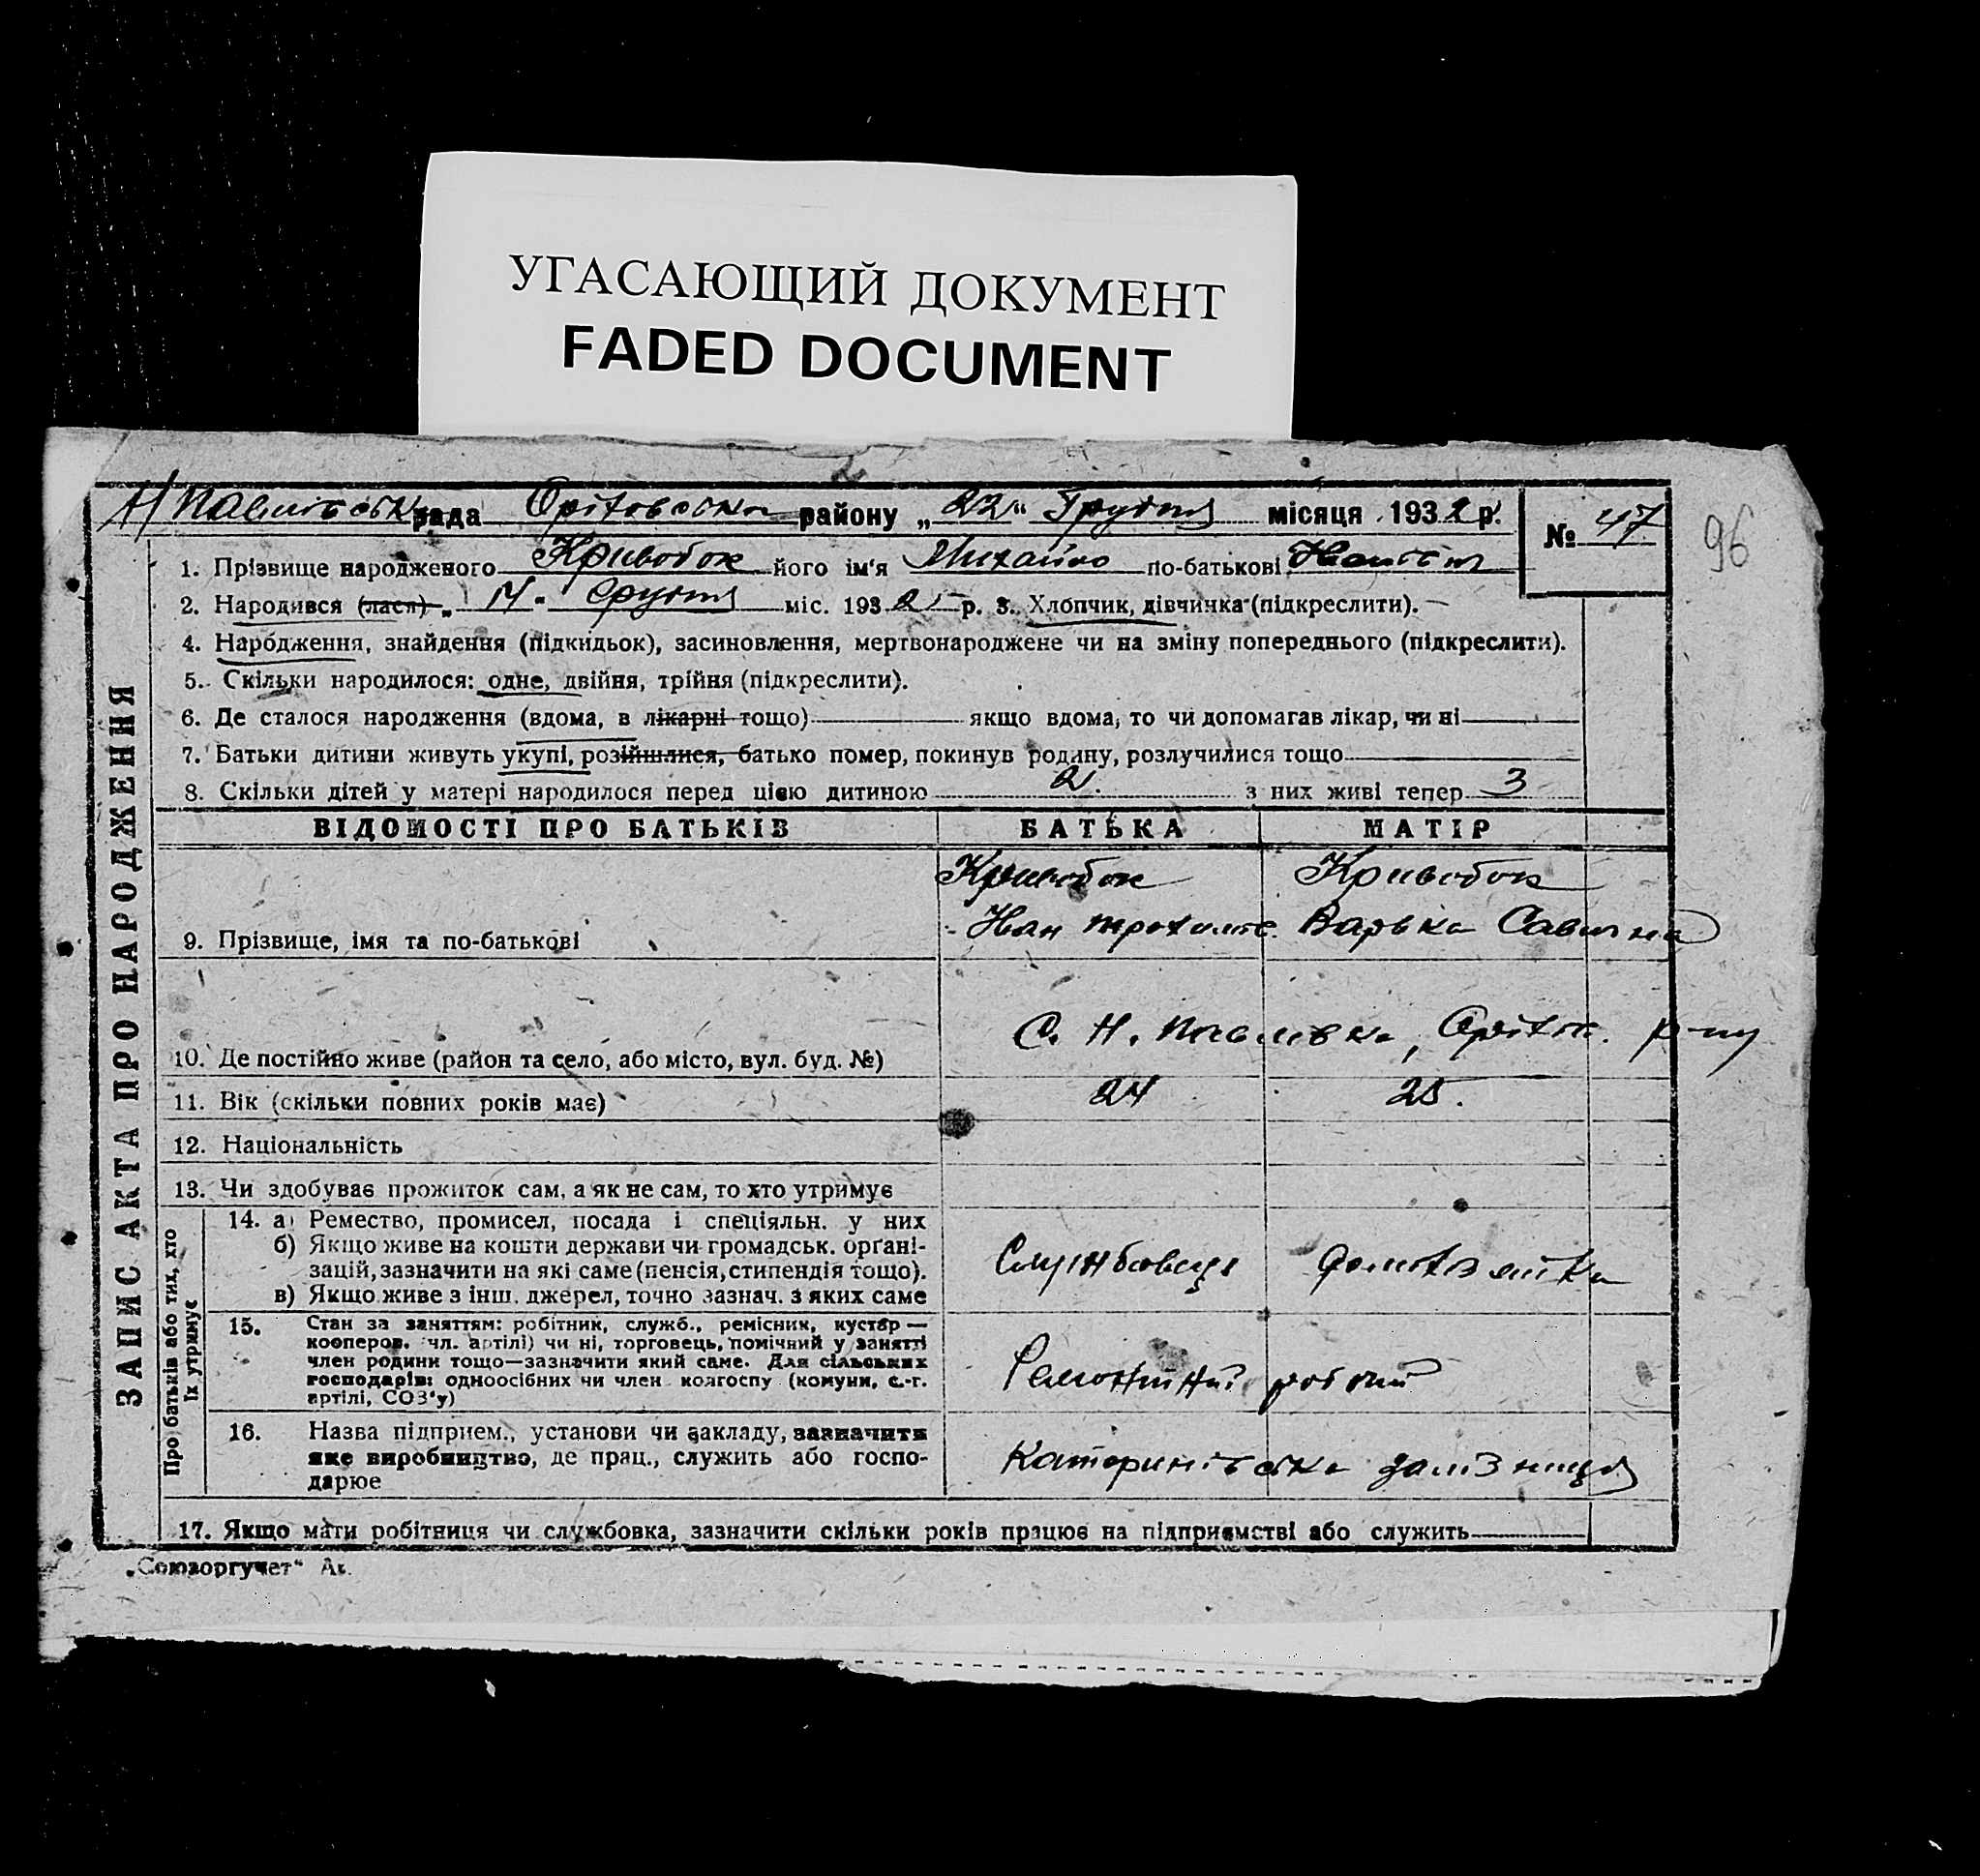 УГАСАЮЩИЙ ДОКУМЕНТ
FADED DOCUMENT
Н/Павлівська рада Оріхівська району „22“ Грудня місяця 1932 р.
№ 47
96
1. Прізвище народженого Кривобок його ім'я Михайло по-батькові
2. Народився (лася) „14“ Грудня міс. 1932 р. 3. Хлопчик, дівчинка (підкреслити).
4. Народження, знайдення (підкидьок), засиновлення, мертвонароджене чи на зміну попереднього (підкреслити).
5. Скільки народилося: одне, двійня, трійня (підкреслити).
6. Де сталося народження (вдома, в лікарні тощо) якщо вдома, то чи допомагав лікар, чи ні
7. Батьки дитини живуть укупі, розійшлися, батько помер, покинув родину, розлучилися тощо
8. Скільки дітей у матері народилося перед цією дитиною 2. з них живі тепер 3
ВІДОМОСТІ ПРО БАТЬКІВ БАТЬКА МАТІР
Кривобок Кривобок
9. Прізвище, імя та по-батькові Іван Варька Савична
10. Де постійно живе (район та село, або місто, вул. буд. №) С. Н. Павлівка, Оріхів. р-ну
11. Вік (скільки повних років має) 24 25.
12. Національність
13. Чи здобуває прожиток сам, а як не сам, то хто утримує
14. а) Ремество, промисел, посада і спеціяльн. у них
б) Якщо живе на кошти держави чи громадськ. орґані-
зацій, зазначити на які саме (пенсія, стипендія тощо).
в) Якщо живе з інш. джерел, точно зазнач. з яких саме
Службовець
15. Стан за заняттям: робітник, служб., ремісник, кустар —
кооперов. чл. артілі) чи ні, торговець, помічний у занятті
член родини тощо—зазначити який саме. Для сільських
господарів: одноосібних чи член колгоспу (комуни, с.-г.
артілі, СОЗ'у)
Ремонтний робочий
16. Назва підприєм., установи чи закладу, зазначити
яке виробництво, де прац., служить або госпо-
дарює
Катеринівська залізниця
17. Якщо мати робітниця чи службовка, зазначити скільки років працює на підприємстві або служить
ЗАПИС АКТА ПРО НАРОДЖЕННЯ
Про батьків або тих, хто
їх утримує
„Союзоргучет“